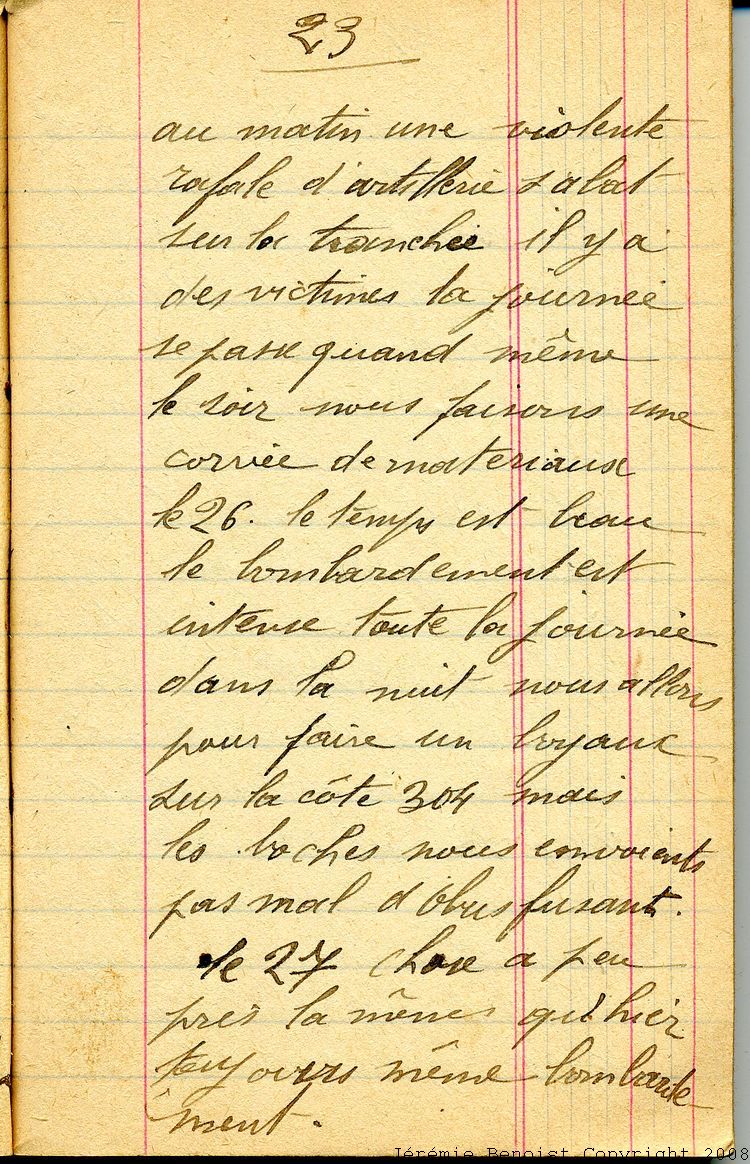 23
au matin une violente
rafale d'artillerie s'abat
sur la tranchée il y a
des victimes la journeé
se passe quand même
le soir nous faisons une
corvée de materiaux
le 26. le temps est beau
le bombardement est
intense toute la journeé
dans la nuit nous allons
pour faire un boyaux
sur la côte 304 mais
les boches nous envoients
pas mal d'obus fusant.
le 27 chose a peu
pres la mêmes qu'hier
toujours même bombarde
ment.
Jérémie Benoist Copyright 2008